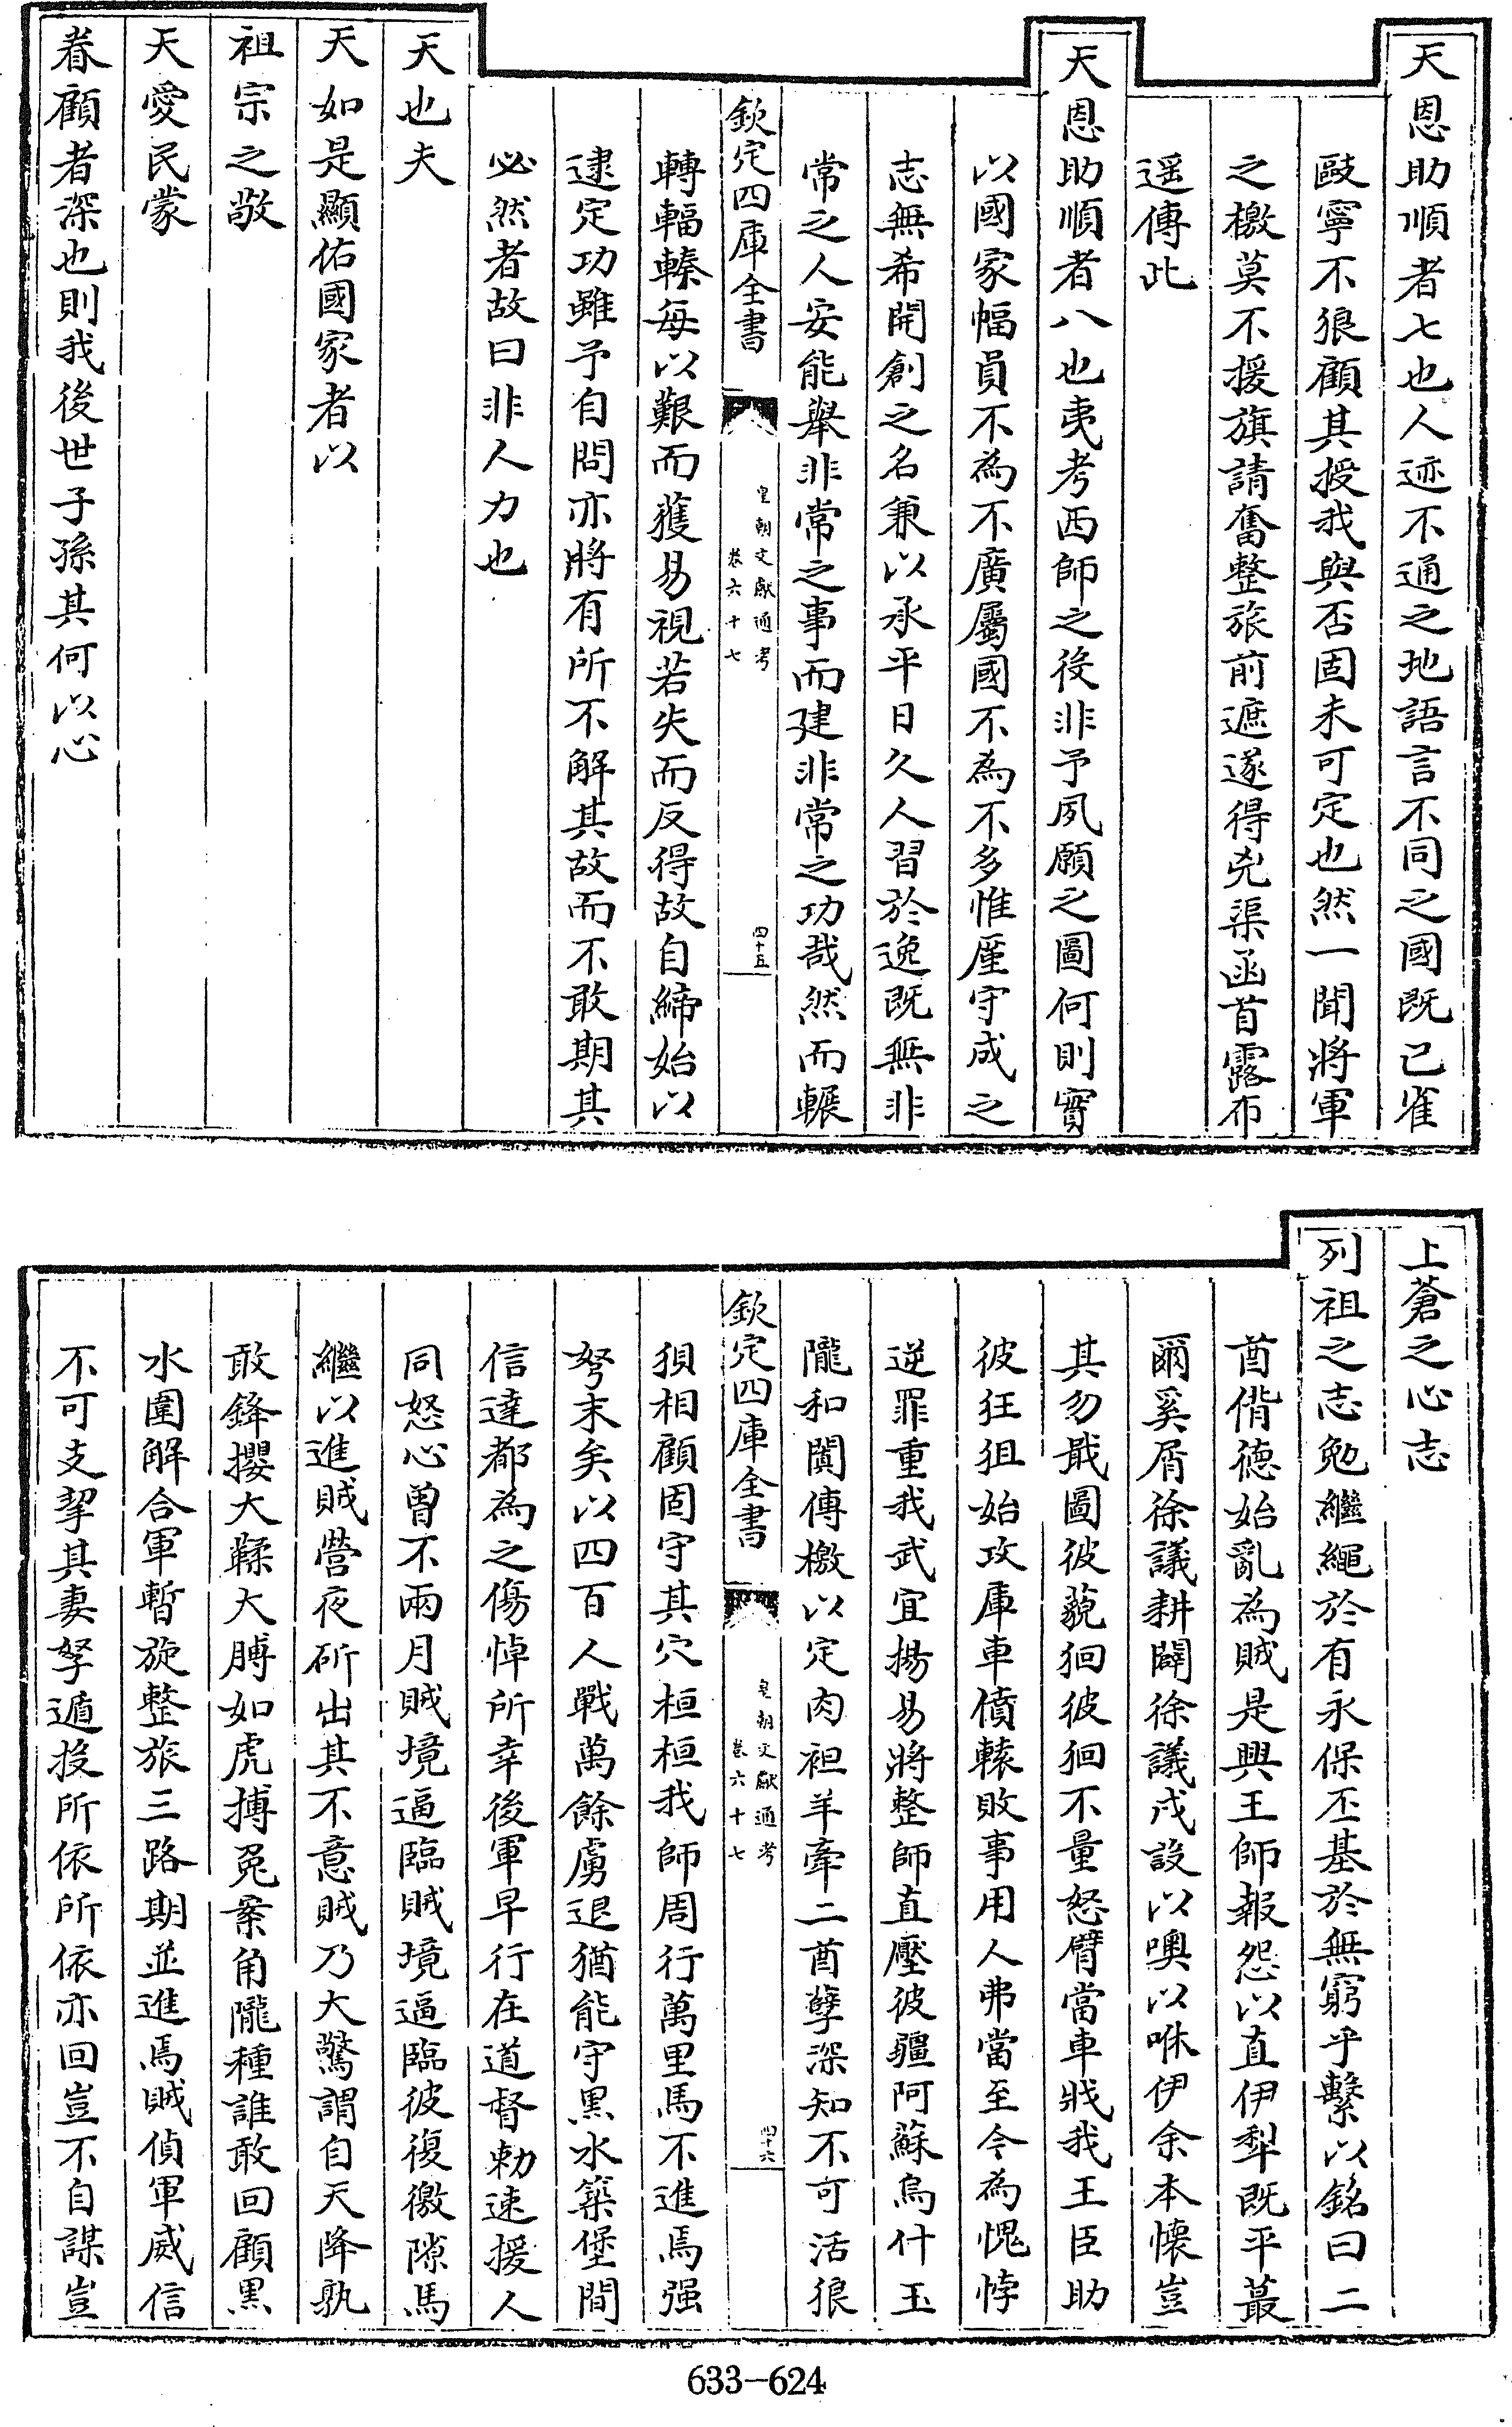 天恩助順者七也人迹不通之地語言不同之國既已雀
瞉寧不狼顧其授我與否固未可定也然一聞將軍
之檄莫不援旗請奮整旅前遮遂得兇渠函首露布
遥傳此
天恩助順者八也夷考西師之役非予夙願之圖何則實
以國家幅員不為不廣屬國不為不多惟廑守成之
志無希開創之名兼以承平日久人習於逸既無非
常之人安能舉非常之事而建非常之功哉然而輾
欽定四庫全書
皇朝文獻通考
卷六十七
四十五
轉輻輳每以艱而獲易視若失而反得故自締始以
逮定功雖予自問亦將有所不解其故而不敢期其
必然者故曰非人力也
天也夫
天如是顯佑國家者以
祖宗之敬
天愛民蒙
眷顧者深也則我後世子孫其何以心
上蒼之心志
列祖之志勉繼繩於有永保丕基於無窮乎繫以銘曰二
酋偝德始亂為賊是興王師報怨以直伊犁既平蕞
爾奚屑徐議耕闢徐議戍設以噢以咻伊余本懷豈
其勿戢圖彼藐徊彼徊不量怒臂當車戕我王臣助
彼狂狙始攻庫車僨轅敗事用人弗當至今為愧悖
逆罪重我武宜揚易將整師直壓彼疆阿蘇烏什玉
隴和闐傳檄以定肉袒羊牽二酋孽深知不可活狼
狽相顧固守其穴桓桓我師周行萬里馬不進焉强
弩末矣以四百人戰萬餘虜退猶能守黑水築堡間
信達都為之傷悼所幸後軍早行在道督勅速援人
同怒心曾不兩月賊境逼臨賊境逼臨彼復徼隙馬
繼以進賊營夜斫出其不意賊乃大驚謂自天降孰
敢鋒攖大鞣大膊如虎搏兔案角隴種誰敢回顧黑
水圍解合軍暫旋整旅三路期並進焉賊偵軍威信
不可支挈其妻孥遁投所依所依亦回豈不自謀豈
欽定四庫全書
皇朝文獻通考
卷六十七
四十六
633-624